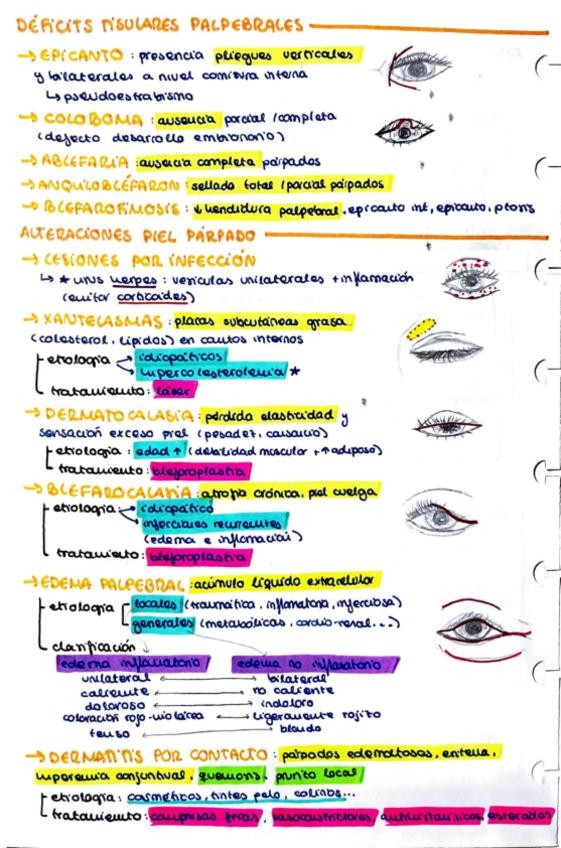 DÉFICITS TISULARES PALPEBRALES
→ EPICANTO: presencia pliegues verticales
y bilaterales a nivel comisura interna
↳ pseudoestrabismo
→ COLOBOMA: ausencia parcial /completa
(defecto desarrollo embrionario)
→ ABLEFARIA: ausencia completa párpados
→ ANQUILOBLÉFARON: sellado total /parcial párpados
→ BLEFAROFIMOSIS: ↓ hendidura palpebral, epicanto int, epicanto, ptosis
ALTERACIONES PIEL PÁRPADO
→ LESIONES POR INFECCIÓN
↳ * virus herpes: vesículas unilaterales + inflamación
(evitar corticoides)
→ XANTELASMAS: placas subcutáneas grasa
(colesterol, lípidos) en cantos internos
etiología → idiopáticos
→ hipercolesterolemia *
tratamiento: láser
→ DERMATOCALASIA: pérdida elasticidad y
sensación exceso piel (pesadez, cansancio)
etiología: edad ↑ (debilidad muscular + ↑ adiposo)
tratamiento: blefaroplastia
→ BLEFAROCALASIA: atrofia crónica, piel cuelga
etiología → idiopático
→ infecciones recurrentes
(edema e inflamación)
tratamiento: blefaroplastia
→ EDEMA PALPEBRAL: acúmulo líquido extracelular
etiología locales (traumática, inflamatoria, infecciosa)
generales (metabólicas, cardio-renal...)
clasificación
edema inflamatorio edema no inflamatorio
unilateral ↔ bilateral
caliente ↔ no caliente
doloroso ↔ indoloro
coloración rojo-violácea ↔ ligeramente rojizo
tenso ↔ blando
→ DERMATITIS POR CONTACTO: párpados edematosos, eritema,
hiperemia conjuntival, quemosis, prurito local
etiología: cosméticos, tintes pelo, colirios...
tratamiento: compresas frías, vasoconstrictores, antihistamínicos, esteroides